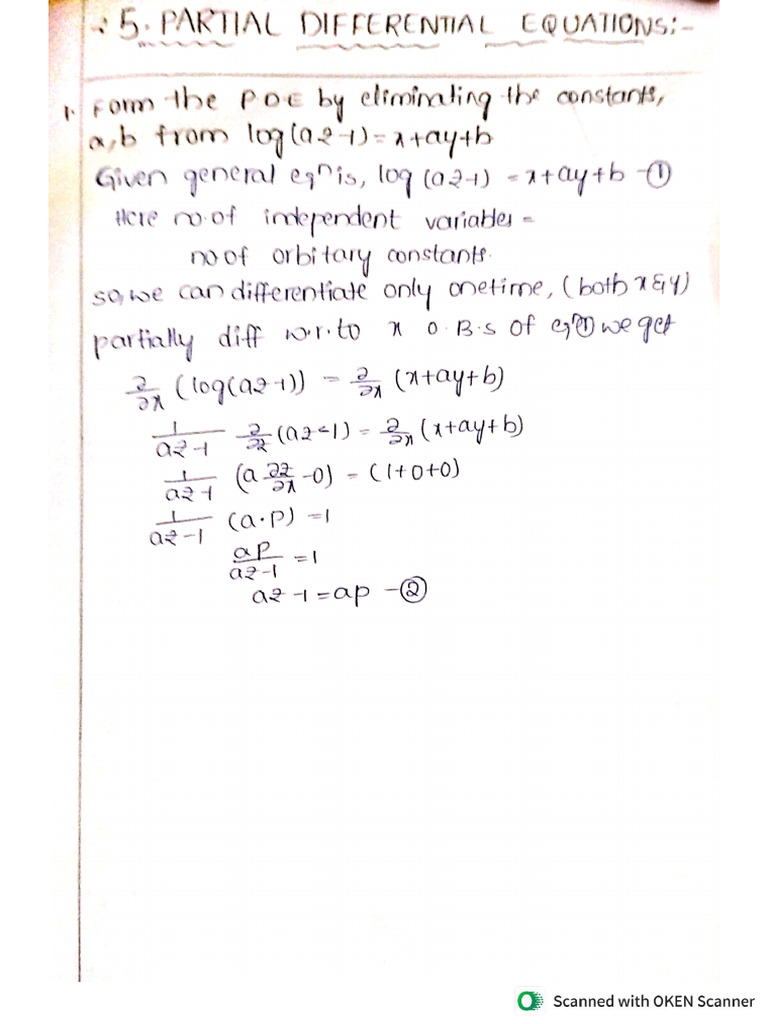 :5. PARTIAL DIFFERENTIAL EQUATIONS:-
1. Form the PDE by eliminating the constants,
a,b from log(az-1)=x+ay+b
Given general eqⁿ is, log(az-1) = x+ay+b -①
Here no.of independent variables =
no of orbitary constants.
so,we can differentiate only onetime, (both x & y)
partially diff w.r.to x O.B.S of eqⁿ① we get
∂/∂x (log(az-1)) = ∂/∂x (x+ay+b)
1/(az-1) ∂/∂x (az-1) = ∂/∂x (x+ay+b)
1/(az-1) (a ∂z/∂x -0) = (1+0+0)
1/(az-1) (a·p) = 1
ap/(az-1) = 1
az-1 = ap -②
Scanned with OKEN Scanner